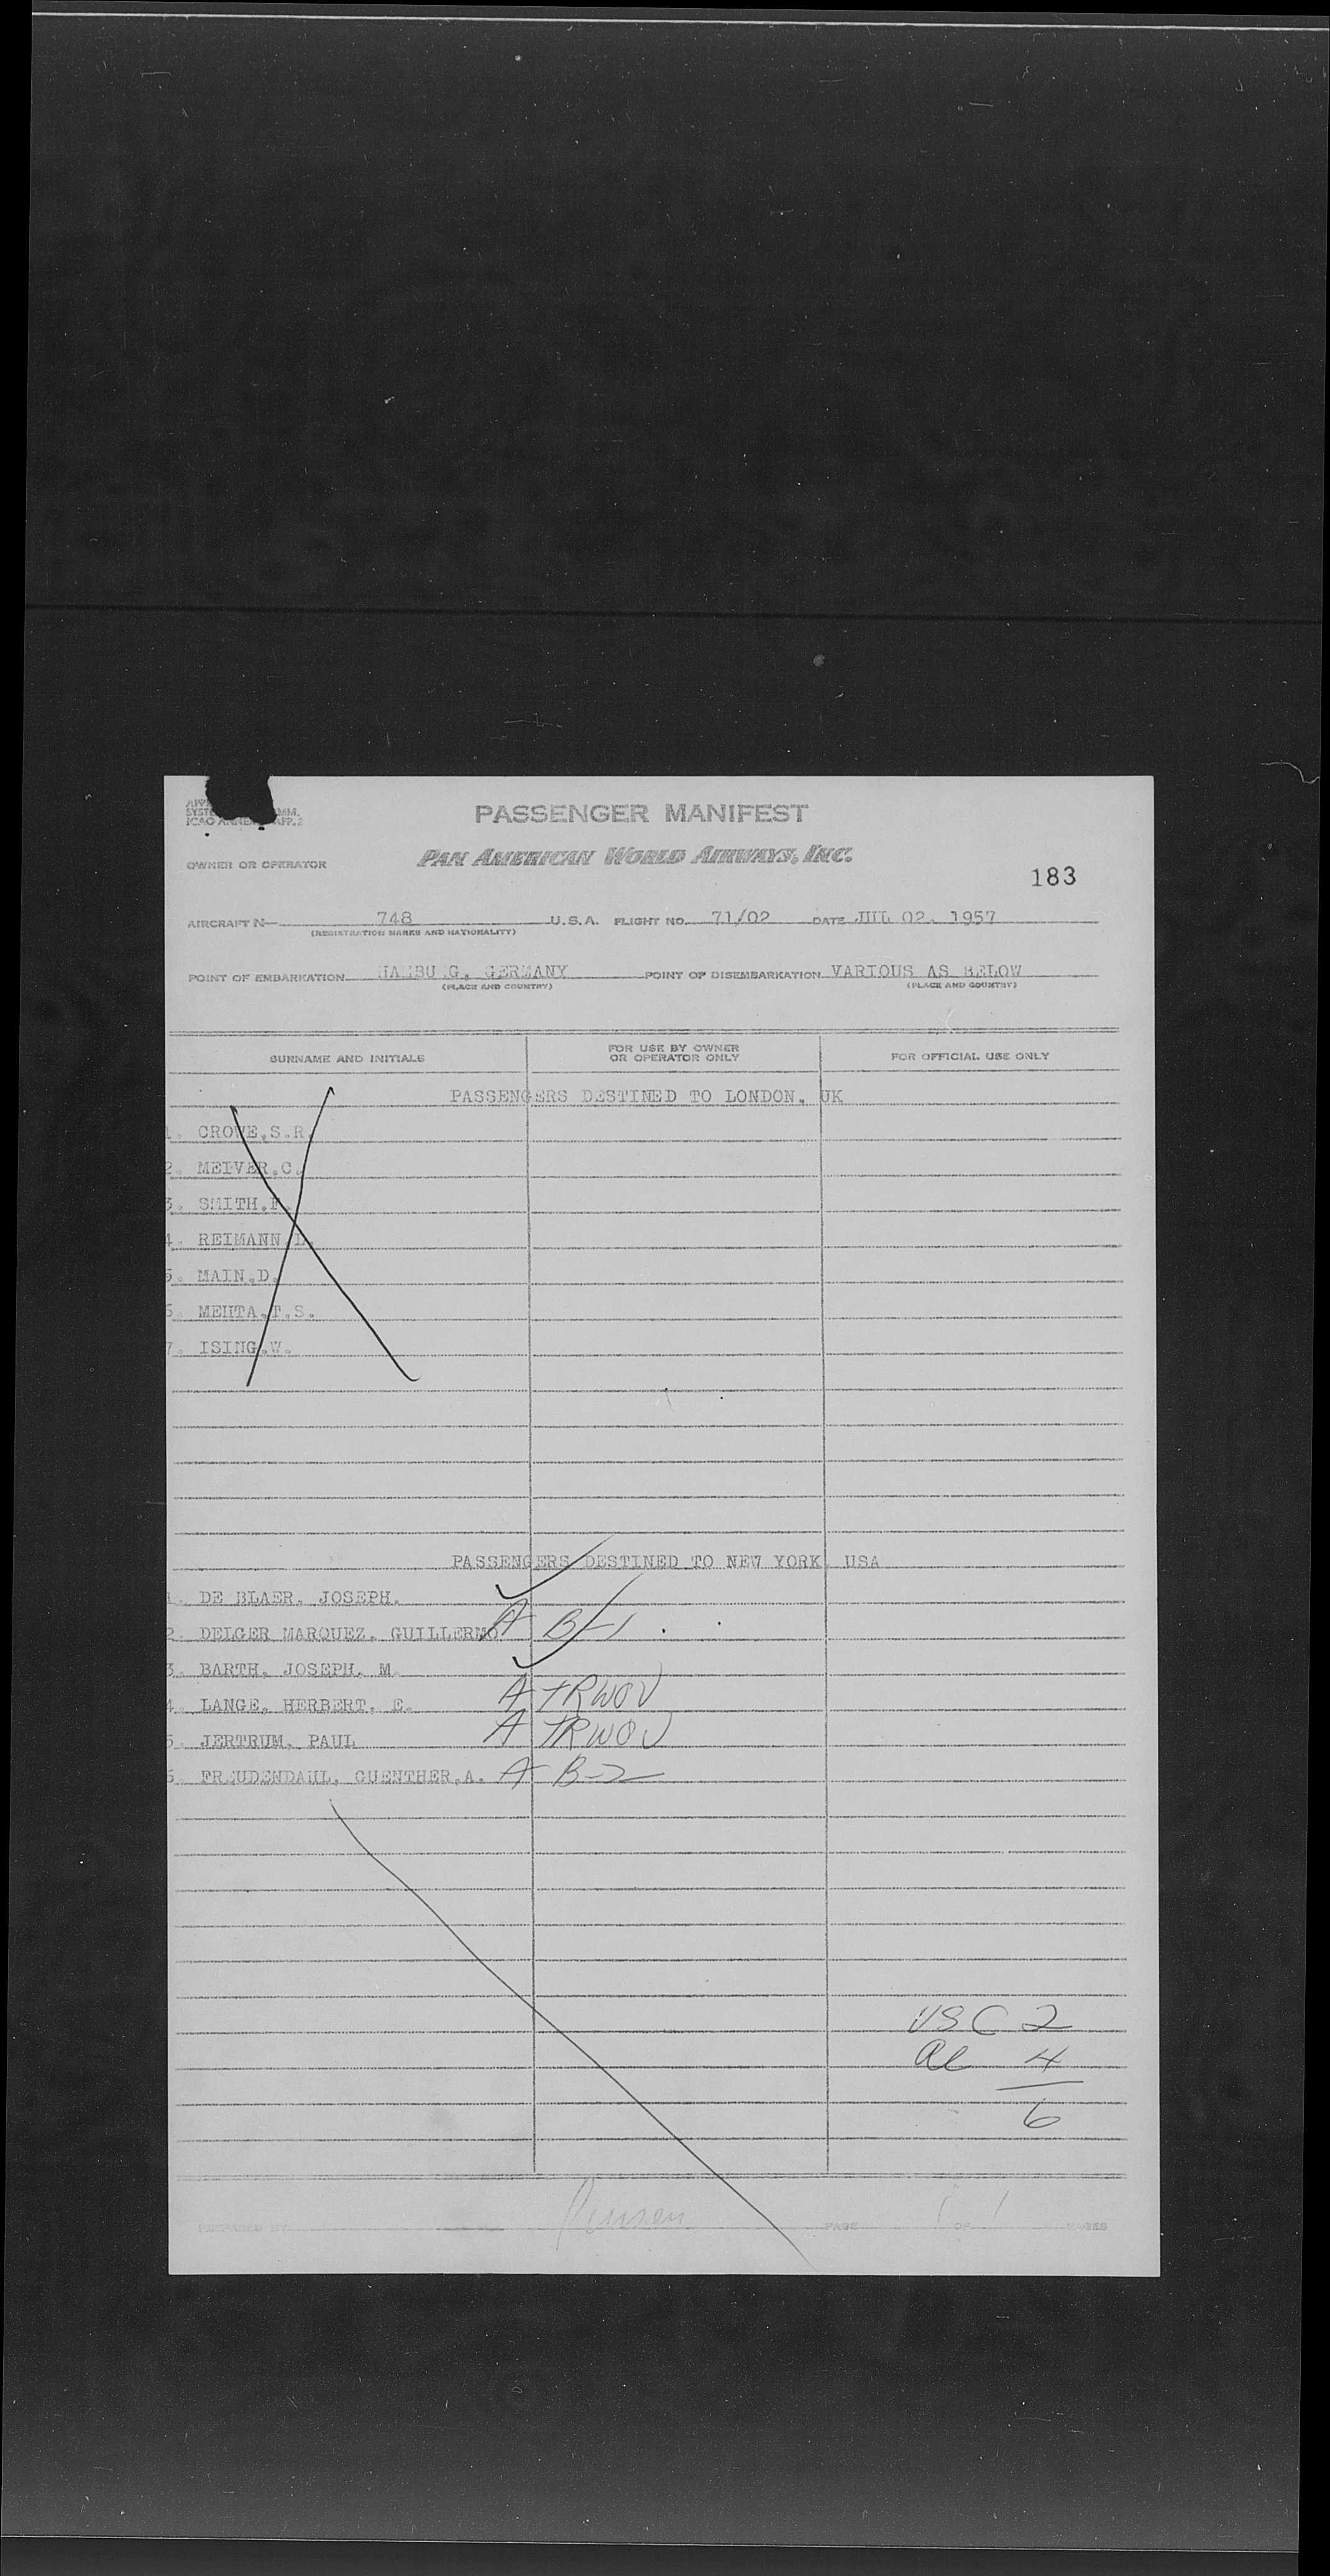 PASSENGER MANIFEST
OWNER OR OPERATOR
PAN AMERICAN WORLD AIRWAYS, INC.
183
AIRCRAFT N 748 U.S.A. FLIGHT NO. 71/02 DATE JUL 02. 1957
(REGISTRATION MARKS AND NATIONALITY)
POINT OF EMBARKATION HAMBU G. GERMANY POINT OF DISEMBARKATION VARIOUS AS BELOW
(PLACE AND COUNTRY) (PLACE AND COUNTRY)
SURNAME AND INITIALS FOR USE BY OWNER OR OPERATOR ONLY FOR OFFICIAL USE ONLY
PASSENGERS DESTINED TO LONDON. UK
1. CROWE.S.R.
2. MEIVER.C.
3. SMITH.
4. REIMANN
5. MAIN.D.
6. MEHTA.T.S.
7. ISING.W.
PASSENGERS DESTINED TO NEW YORK. USA
1. DE BLAER. JOSEPH.
2. DELGER MARQUEZ. GUILLERMO A B-1
3. BARTH. JOSEPH. M.
4. LANGE. HERBERT. E. A TRWOV
5. JERTRUM. PAUL A TRWOV
6. FREUDENDAHL. GUENTHER.A. A B-2
USC 2
al 4
6
PREPARED BY PAGE 1 OF 1 PAGES